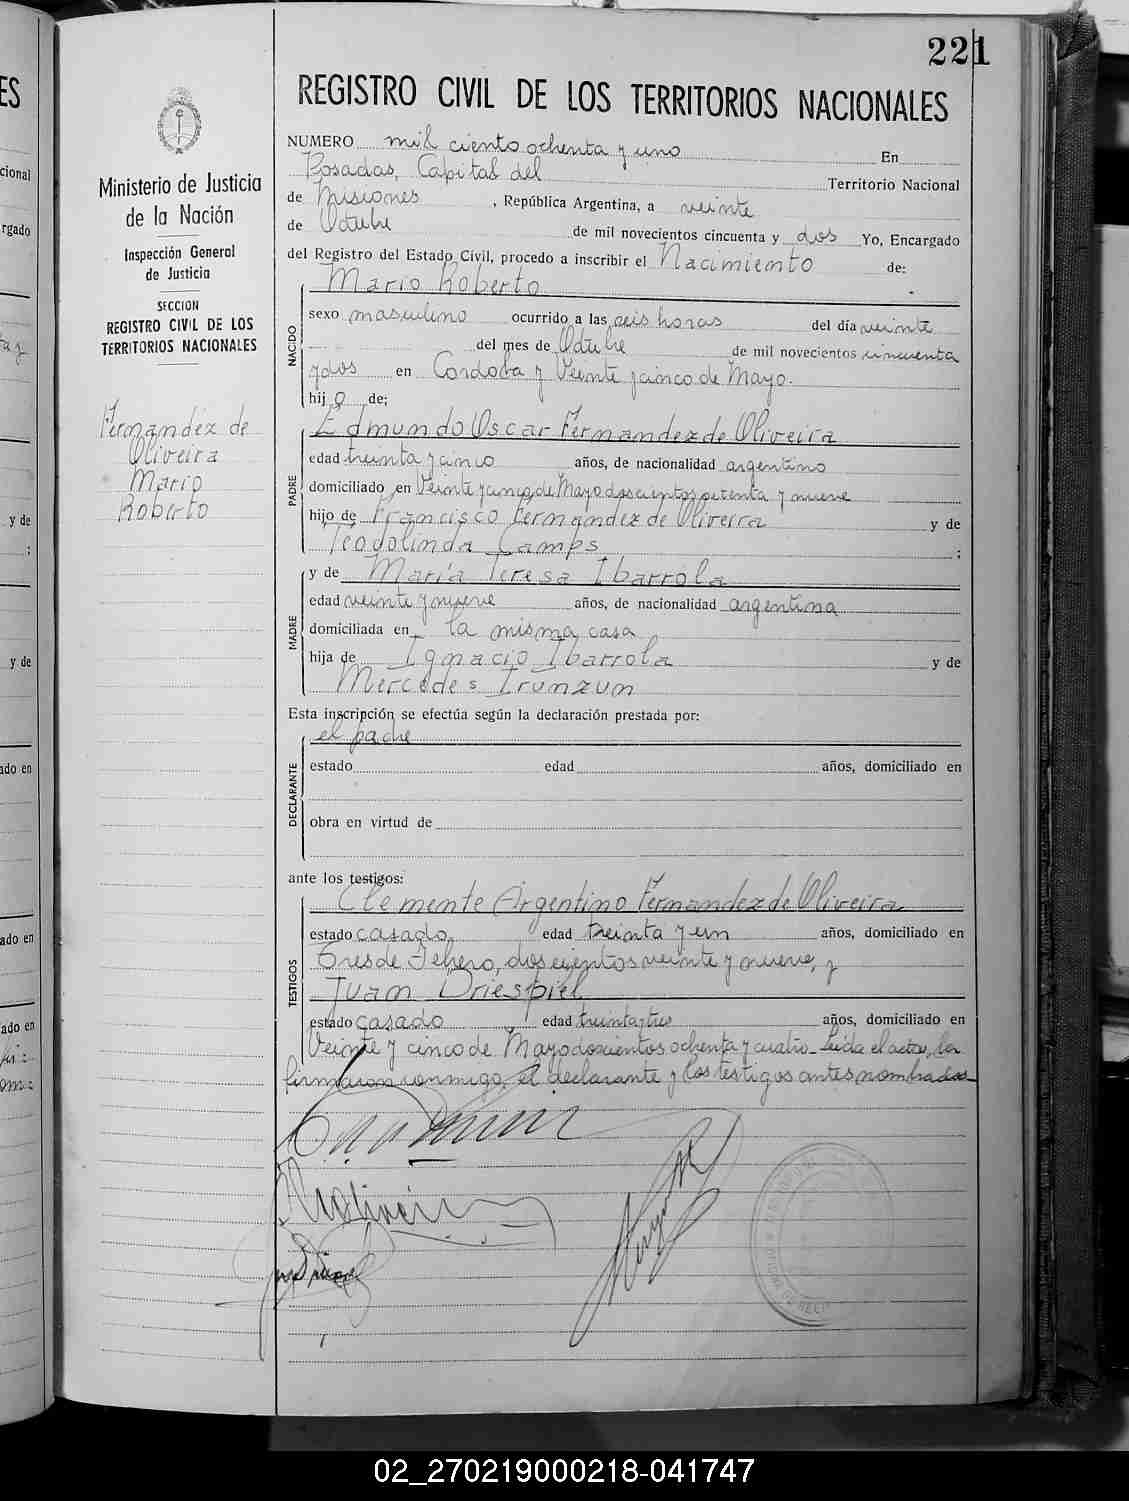 221
REGISTRO CIVIL DE LOS TERRITORIOS NACIONALES
Ministerio de Justicia
de la Nación
Inspección General
de Justicia
SECCION
REGISTRO CIVIL DE LOS
TERRITORIOS NACIONALES
Fernandez de
Oliveira
Mario
Roberto
NUMERO mil ciento ochenta y uno En
Posadas, Capital del Territorio Nacional
de Misiones, República Argentina, a veinte
de Octubre de mil novecientos cincuenta y dos Yo, Encargado
del Registro del Estado Civil, procedo a inscribir el Nacimiento de:
Mario Roberto
NACIDO
sexo masculino ocurrido a las seis horas del día veinte
del mes de Octubre de mil novecientos cincuenta
y dos en Cordoba y Veinte y cinco de Mayo.
hij o de;
Edmundo Oscar Fernandez de Oliveira
PADRE
edad treinta y cinco años, de nacionalidad argentino
domiciliado en Veinte y cinco de Mayo doscientos setenta y nueve
hijo de Francisco Fernandez de Oliveira y de
Teodolinda Camps ;
y de María Teresa Ibarrola
MADRE
edad veinte y nueve años, de nacionalidad argentina
domiciliada en la misma casa
hija de Ignacio Ibarrola y de
Mercedes Irunzun
Esta inscripción se efectúa según la declaración prestada por:
el padre
DECLARANTE
estado edad años, domiciliado en
obra en virtud de
ante los testigos:
Clemente Argentino Fernandez de Oliveira
TESTIGOS
estado casado edad treinta y un años, domiciliado en
Tres de Febrero, doscientos veinte y nueve, y
Juan Driespiel
estado casado edad treinta y tres años, domiciliado en
Veinte y cinco de Mayo doscientos ochenta y cuatro. Leida el acta, la
firmaron conmigo, el declarante y los testigos antes nombrados
ES
cional
rgado
y de
;
y de
ado en
ado en
ado en
02_270219000218-041747